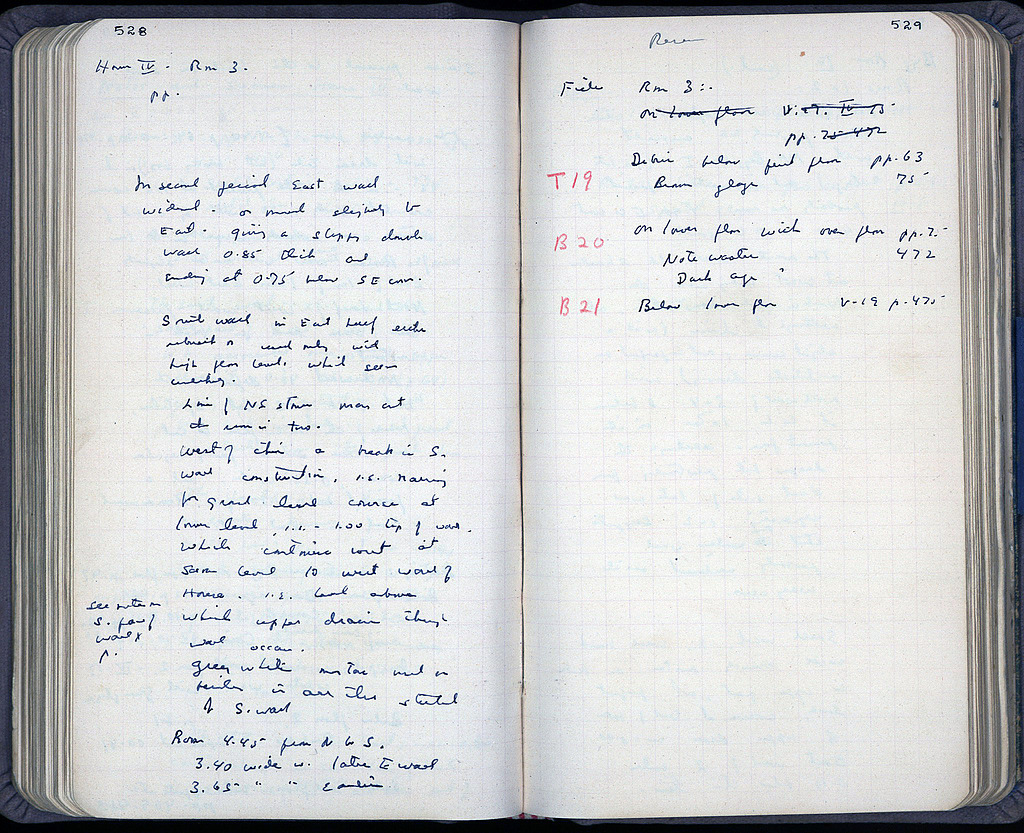 528
House IV. Rm 3.
pp.
In second period East wall
widened. or moved slightly to
East. giving a sloppy double
wall 0.85 thick and
ending at 0.75 below SE corn.
South wall in East half either
rebuilt or used only with
high floor level. which seem
Line of NS stones man cut
the room in two.
West of this a break in S.
wall construction, i.e.
for ground level course at
lower level, i.e. - 1.00 top of wall.
which continues west at
same level to west wall of
House. i.e. level above
which upper drain through
wall occurs.
see note on
S. face of
wall x
p.
Grey white mortar used on
in all this stretch
of S. wall
Room 4.45 from N to S.
3.40 wide w. later E wall
3.65 " " Earlier
529
Room
Field Rm 3:.
on lower floor V.19. IV 75.
pp. 75 472
T19 Debris below first floor pp. 63
Brown glaze 75
B20 On lower floor with over floor pp. 75
Note waster 472
Dark age "
B21 Below lower floor V-19 p. 475